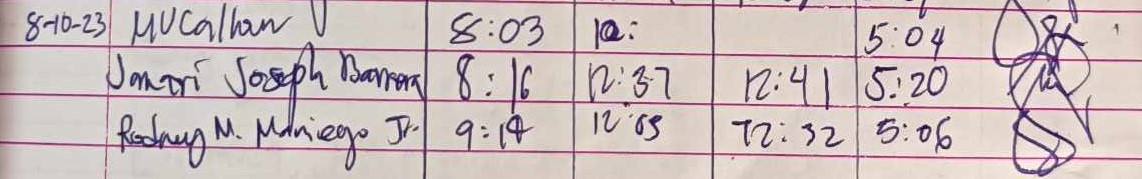 8-10-23 MVCalhan 8:03 12: 5:04
Joseph 8:16 12:37 12:41 5:20
Rodney M. Maniego Jr. 9:14 12:03 12:32 5:06